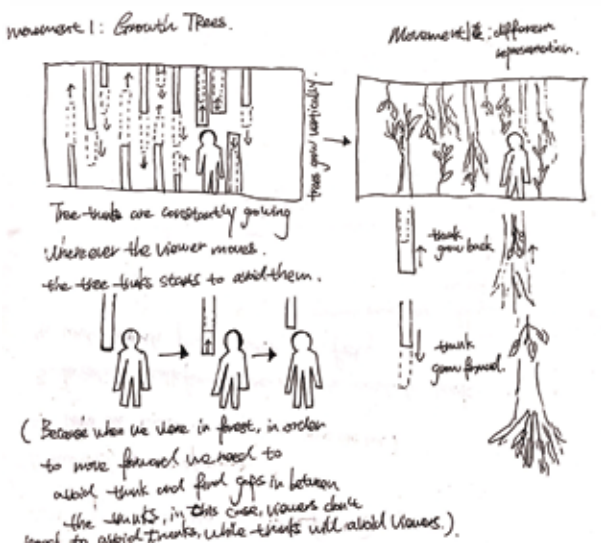 movement 1: Growth Trees.
trees grow vertically.
Tree trunks are constantly growing
Wherever the viewer moves.
the tree trunks starts to avoid them.
( Because when we were in forest, in order
to move forward we need to
avoid trunk and find gaps in between
the trunks, in this case, viewers don't
need to avoid trunks, while trunks will avoid viewers.)
Movement 1 : different
representation.
trunk
grow back
trunk
grow forward.